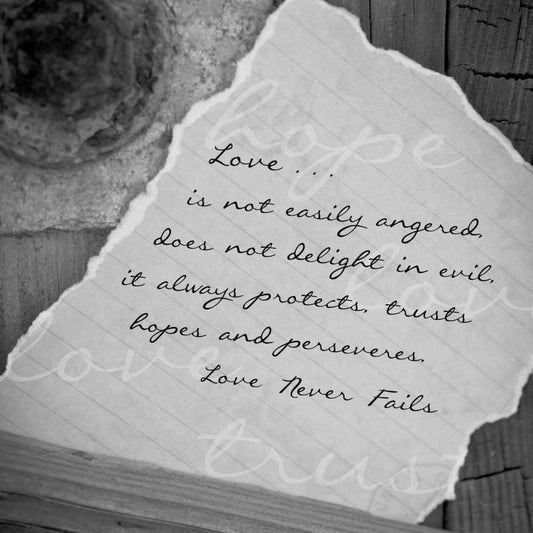 hope
Love . . .
is not easily angered,
does not delight in evil,
love
it always protects, trusts
hopes and perseveres.
love
Love Never Fails
trust